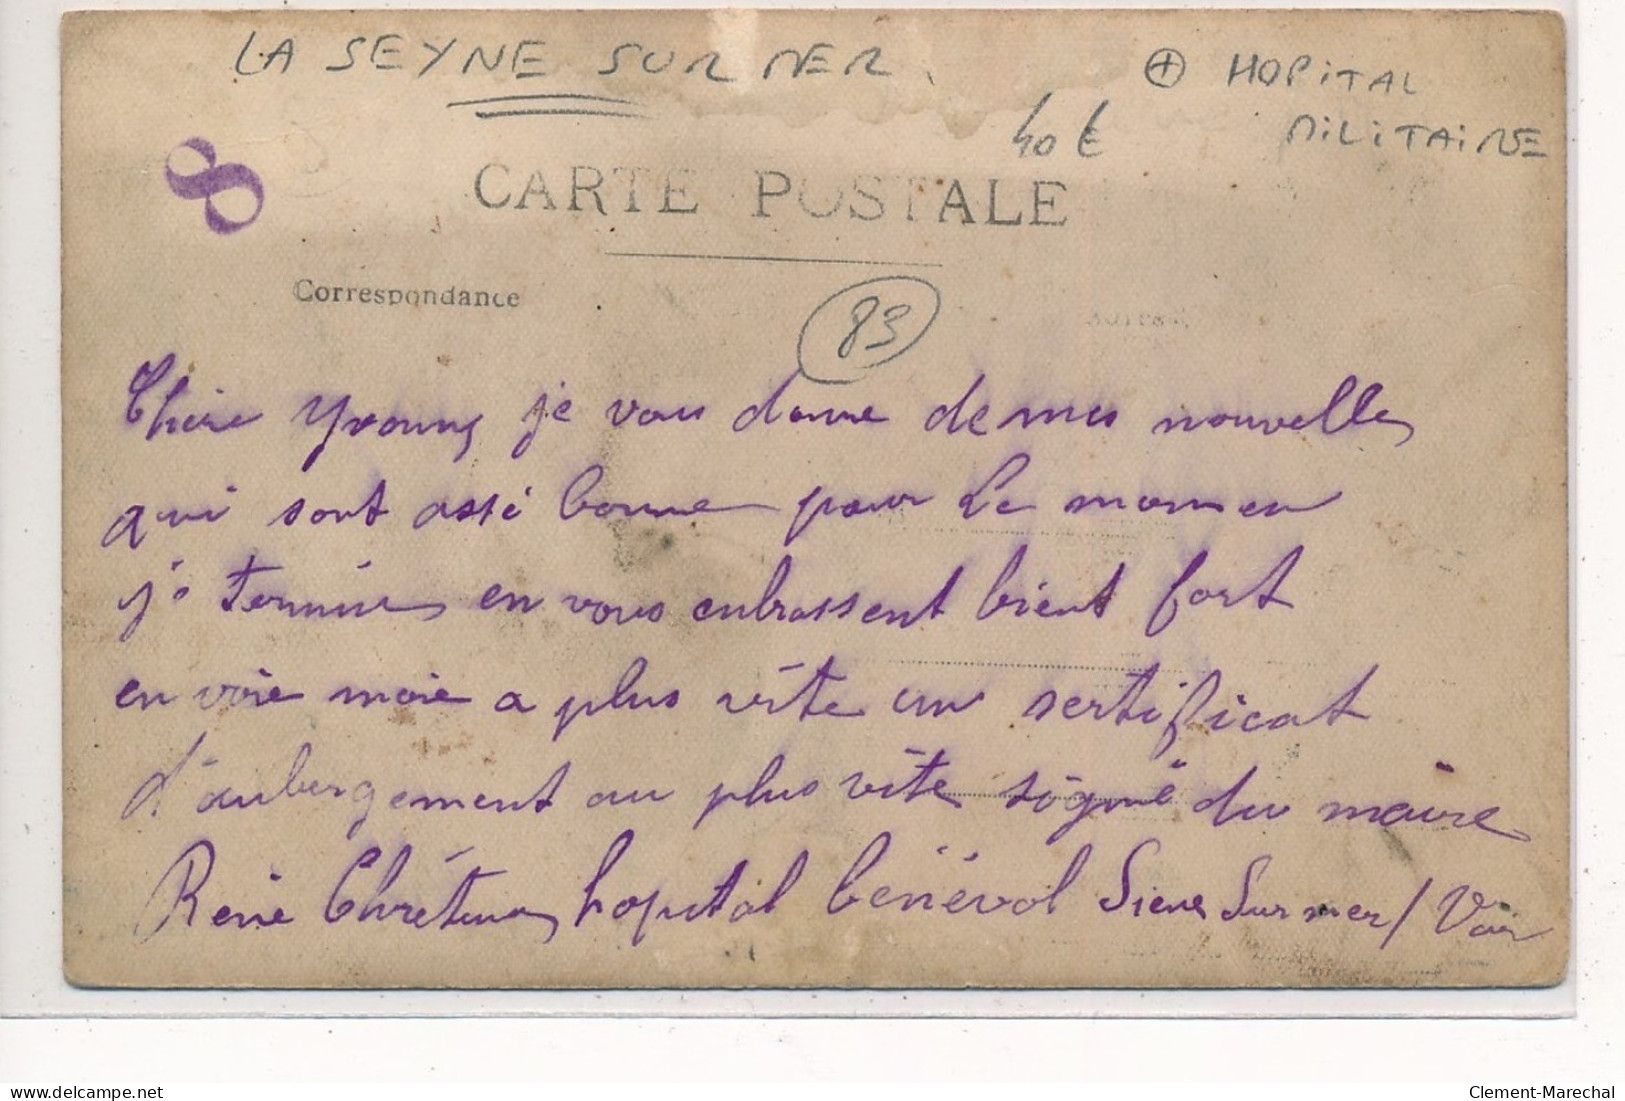 LA SEYNE SUR MER.
⊕ HOPITAL
MILITAIRE
40 €
8
CARTE POSTALE
Correspondance
83
Chère Yvonne je vous donne de mes nouvelles
qui sont assé bonne pour le momen
je termine en vous enbrassent bient fort
envoie moie a plus vite un sertificat
d'aubergement au plus vite signé du maire
René Chrétien hopital bénévol Siene Sur mer / Var
Clement-Marechal